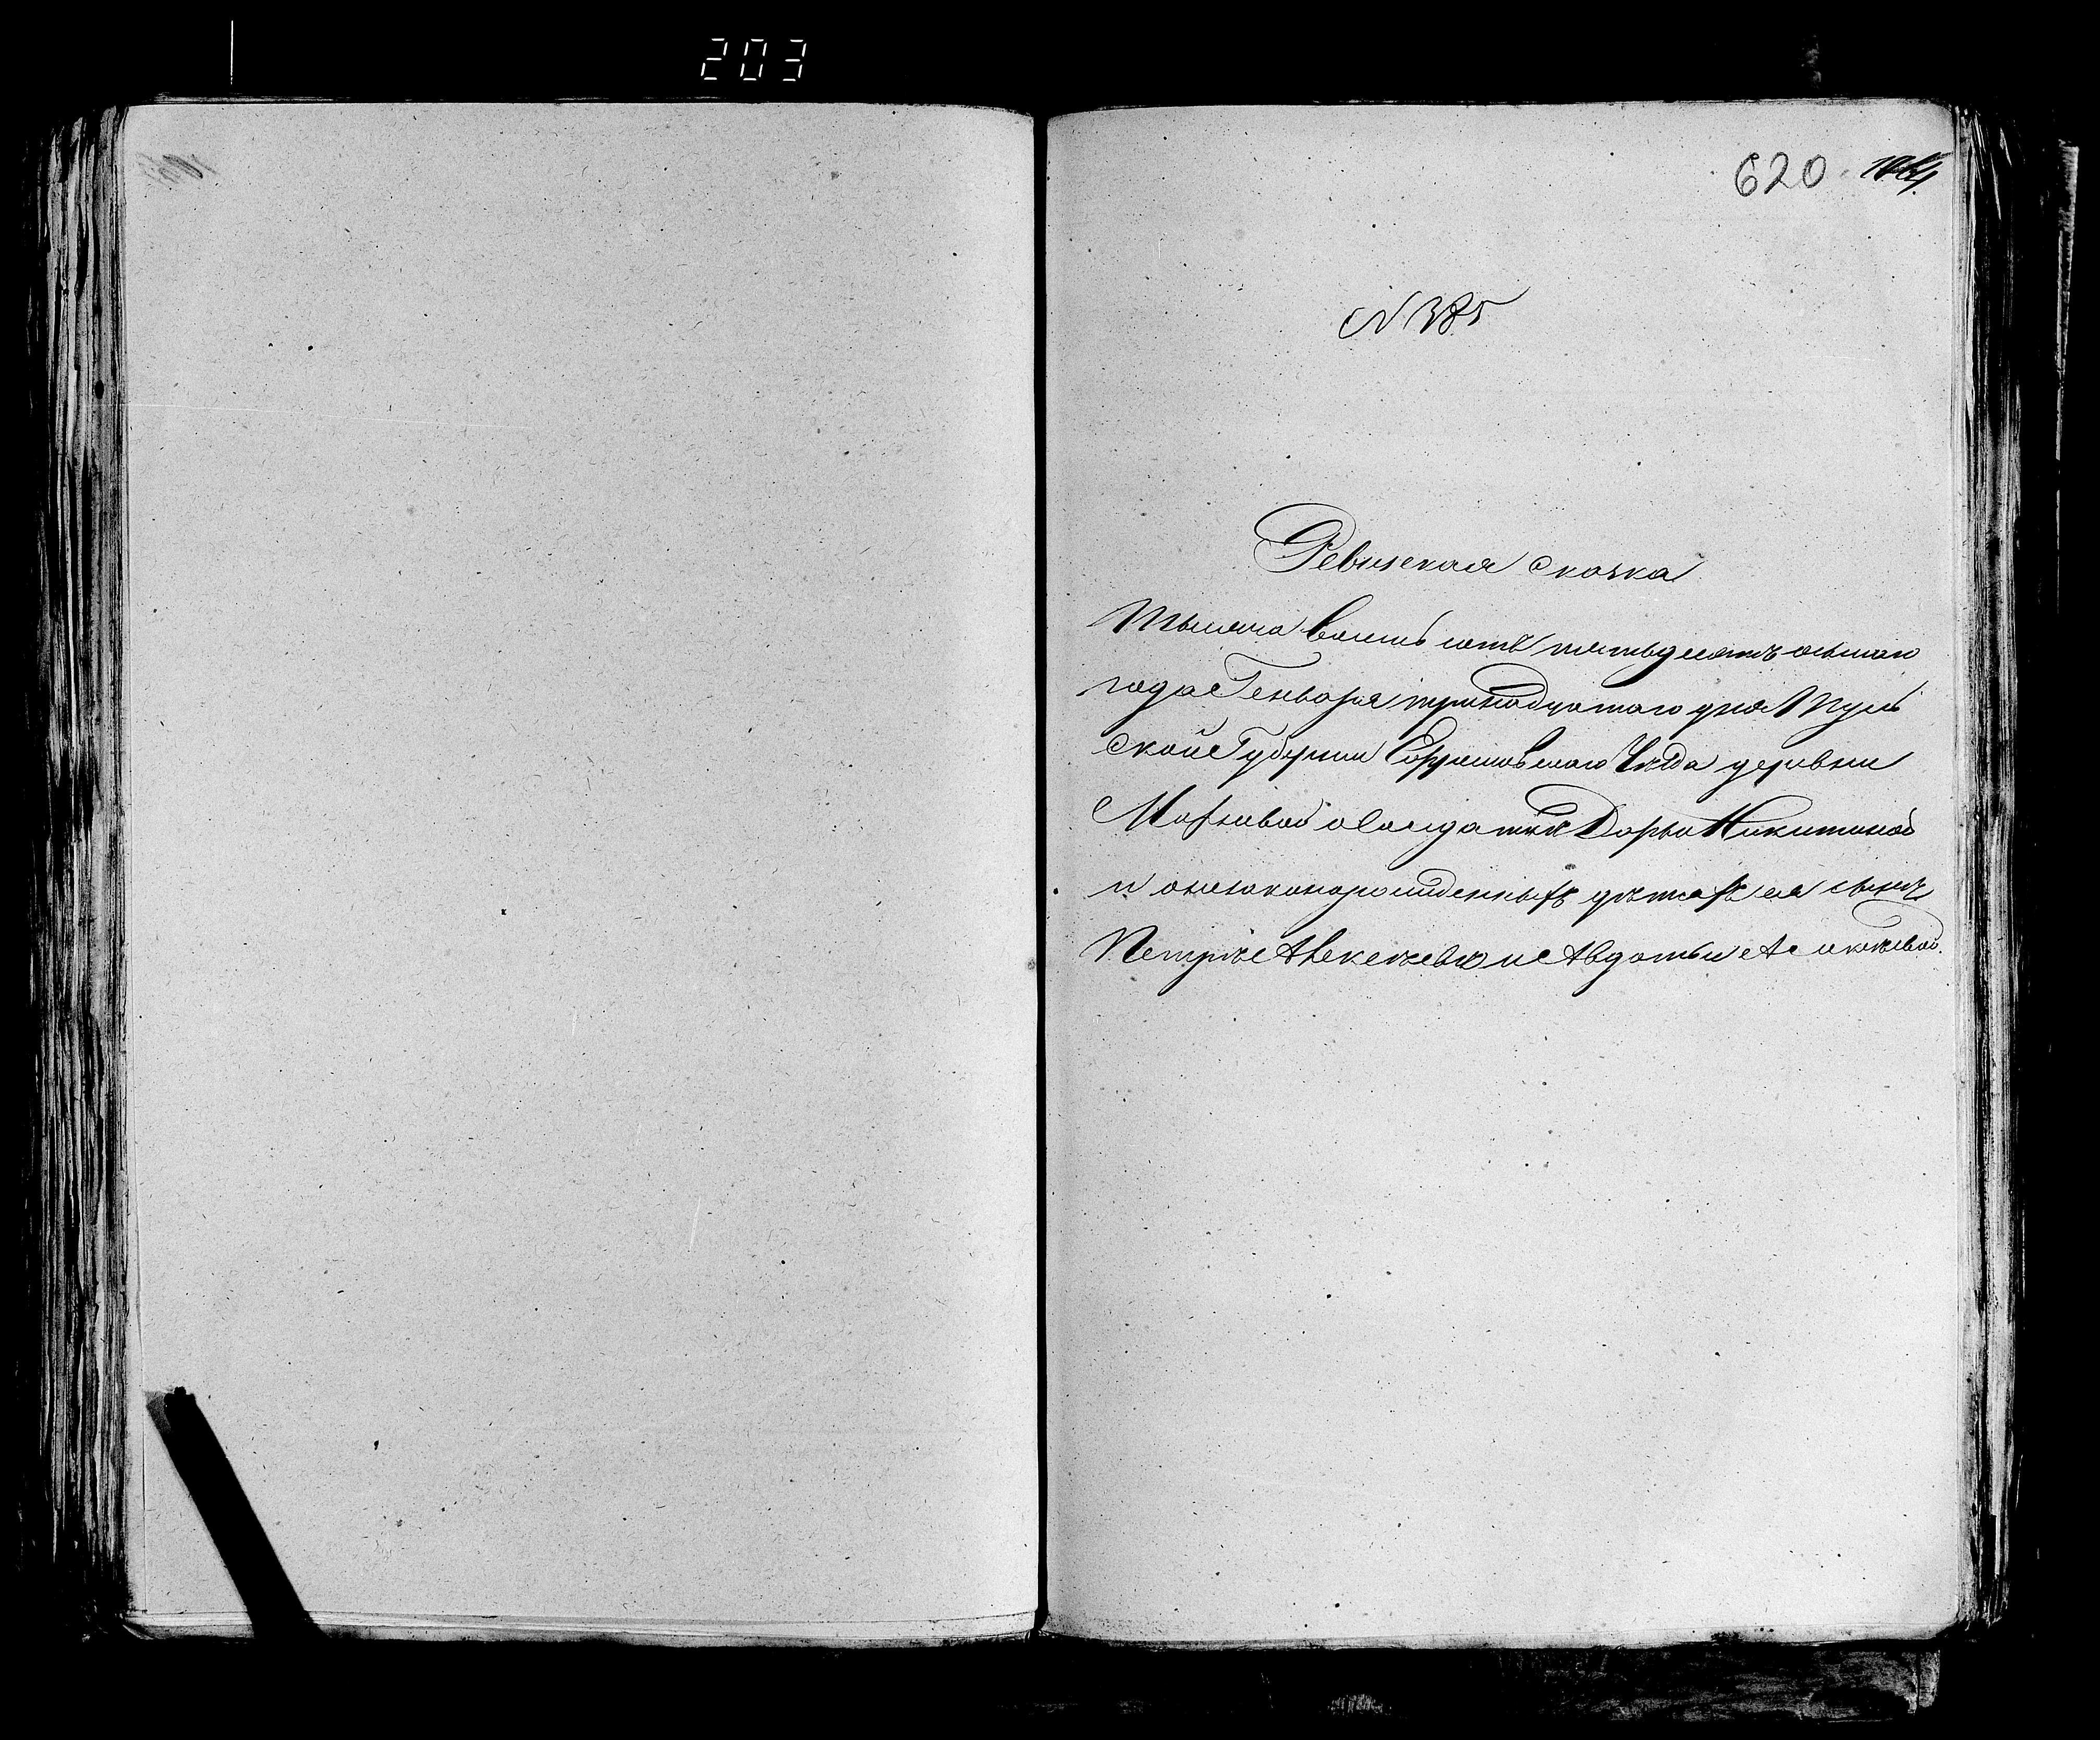 203
620
N 385
Ревизская сказка
Тысяча восемь сотъ пятьдесятъ осьмаго
года Генваря тринадцатаго дня Туль
ской Губернии Ефремовскаго Уѣзда деревни
о Солдаткѣ Дарьи Никитиной
и о незаконорожденныхъ дѣтяхъ ея сынѣ
Петрѣ Алексѣевѣ и Авдотьи Алексѣевой.